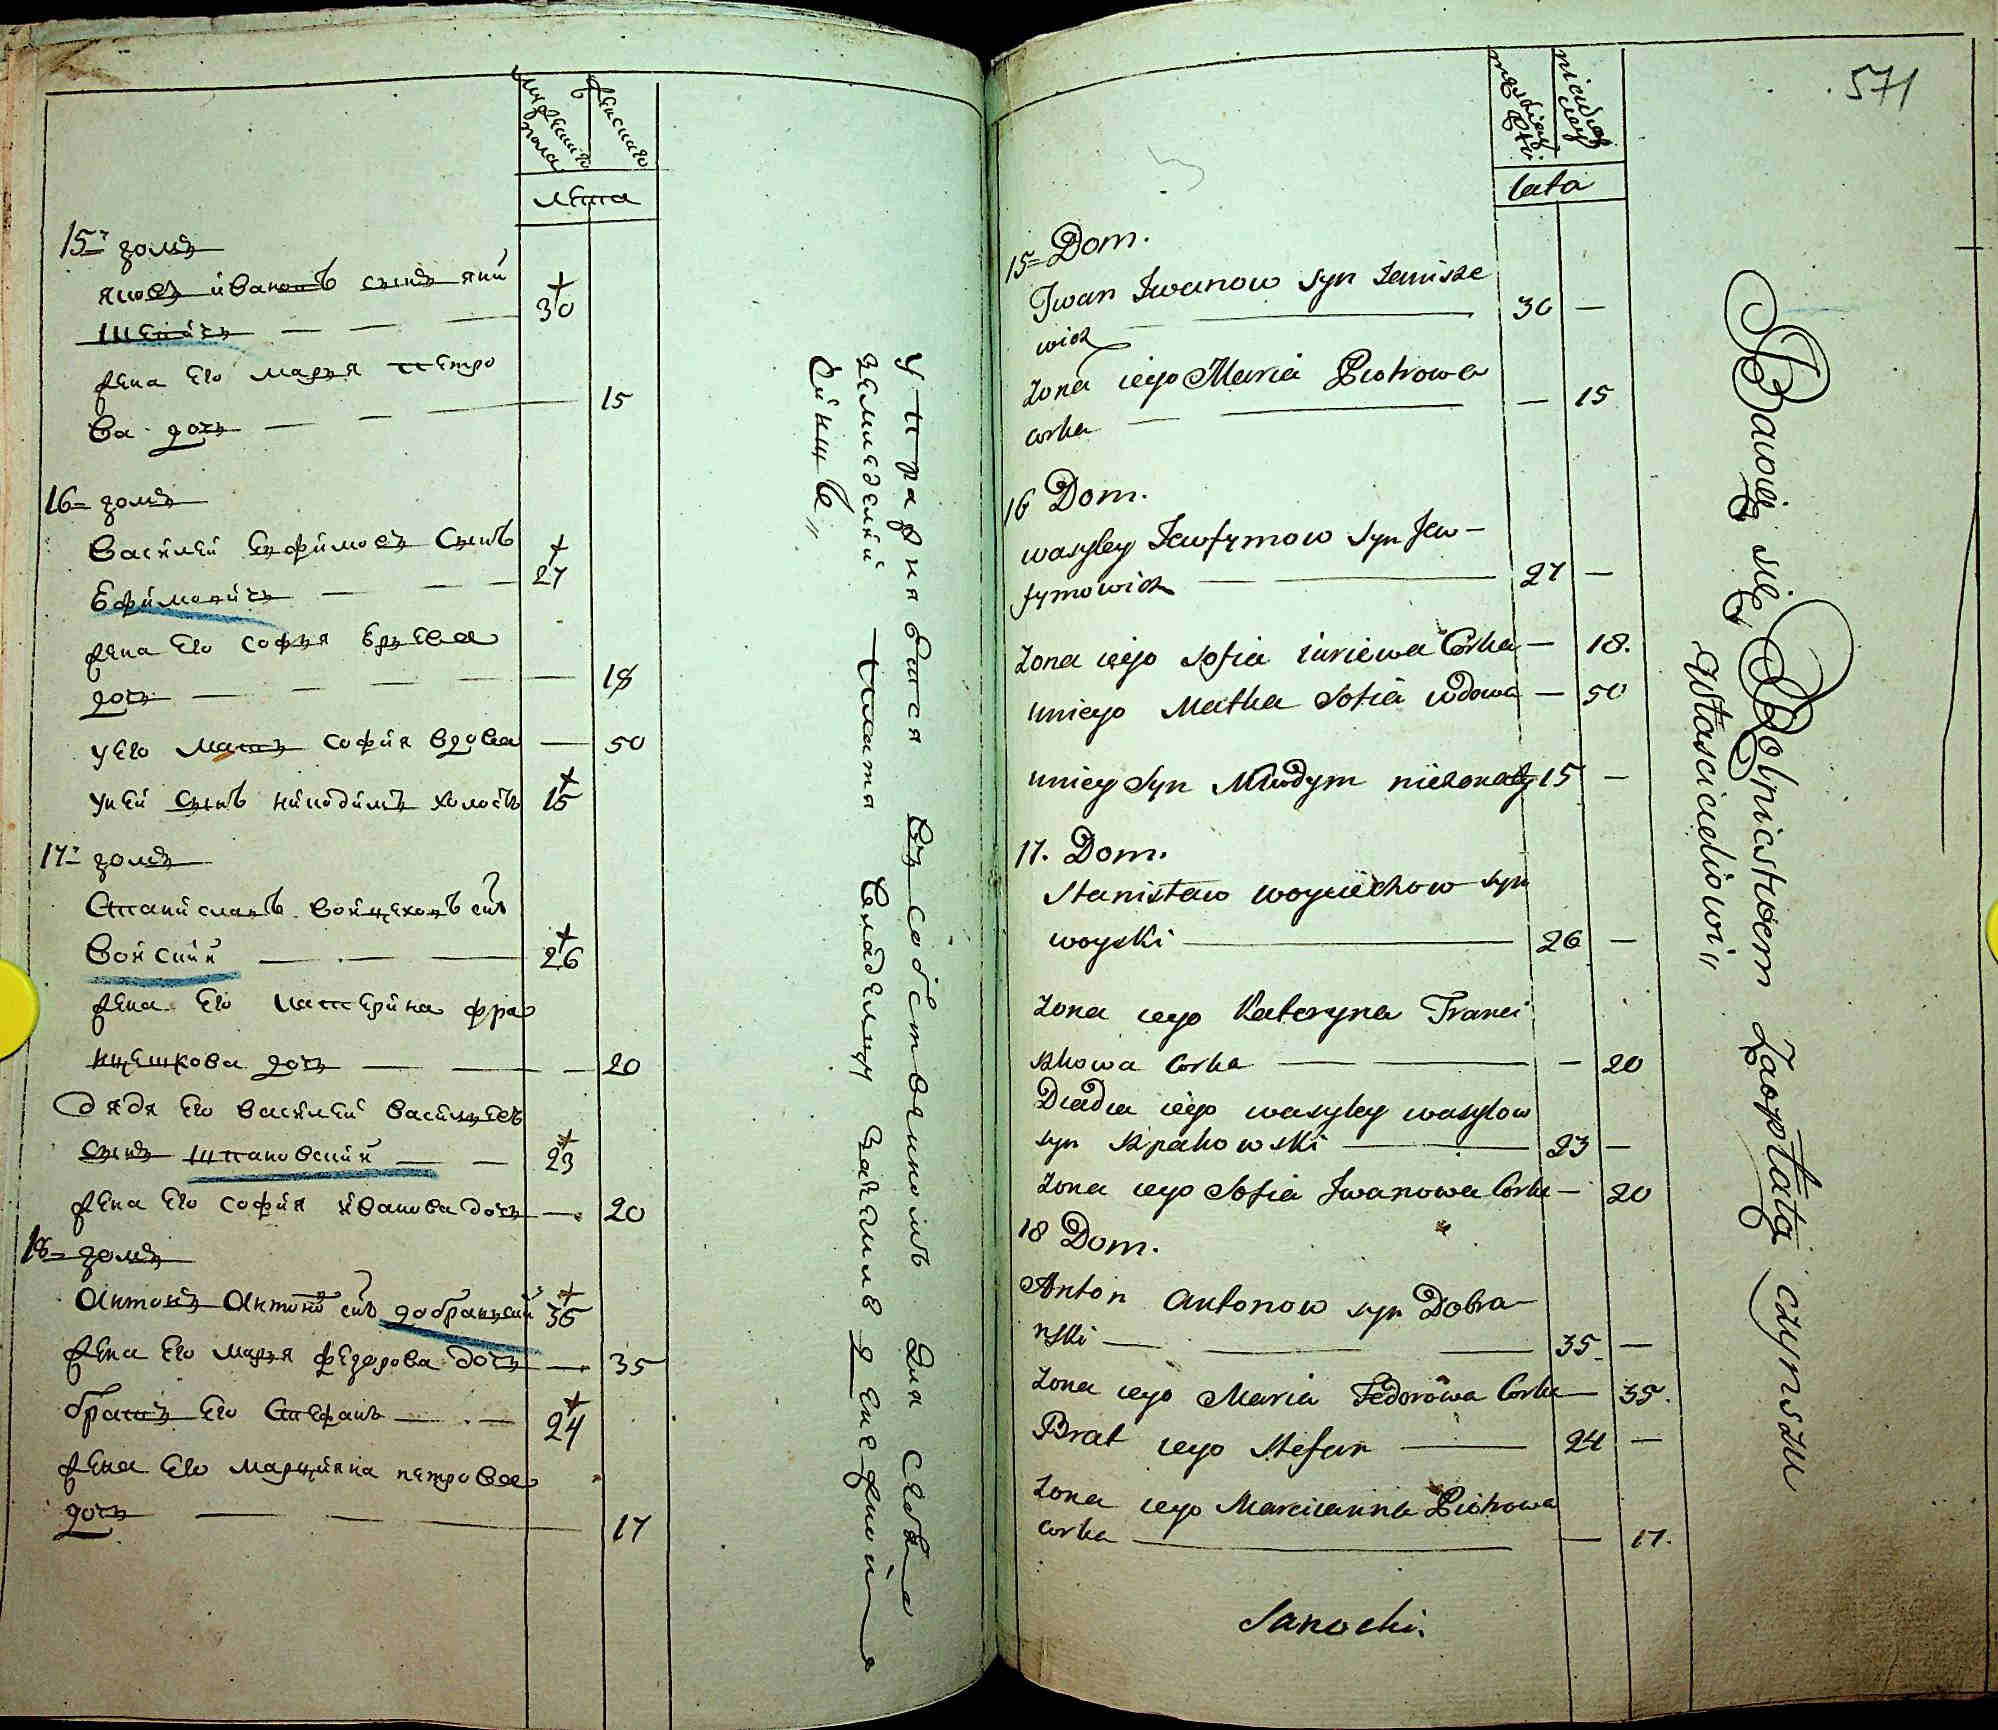 мужескаго пола
женскаго
лѣта
15- домъ
яковъ ивановъ сынъ яни
шевичъ — — — 30
жена Его марья петро
ва дочь — — — 15
16- домъ
василей Ефимовъ сынъ
Ефимовичъ — — — 27
жена Его софья юрьева
дочь — — — — 18
у Его мать софия вдова — 50
у ней сынъ никодимъ холостъ 15
17- домъ
Станиславъ войцеховъ сынъ
войский — — — 26
жена Его катерина фран
цишкова дочь — — — 20
дядя Его василей васильевъ
сынъ шпаковский — — 23
жена Его София иванова дочь — 20
18- домъ
Антонъ Антоновъ сынъ добранский 35
жена Его марья федорова дочь — 35
братъ Его Стефанъ — — 24
жена Его марцияна петрова
дочь — — — — 17
упражняются въ собственномъ для себя
земледелии платя владельцу чиншъ
571
męskiej płci
niewieściey
lata
15= Dom.
Iwan Iwanow syn Janisze
wicz — 30 —
żona iego Maria Piotrowa
corka — — 15
16 Dom.
wasyley Jewfymow syn Jew-
fymowicz — 27 —
żona iego Sofia iuriewa Córka — 18.
uniego Matka Sofia wdowa — 50
uniey Syn nieżonaty 15 —
17. Dom.
Stanisław woyciechow syn
woyski — 26 —
żona iego Kateryna Franci
szkowa Corka — — 20
Diadia iego wasyley wasylow
syn Szpakowski — 23 —
żona iego Sofia Iwanowa Corka — 20
18 Dom.
Anton Antonow syn Dobra-
nski — — — 35 —
żona iego Maria Fedorowa Corka — 35.
Brat iego Stefan — 24 —
żona iego Marcianna Piotrowa
corka — — 17.
Sanocki.
Bawią się Rolnictwem Zaopłatą czynszu
Właścicielowi"